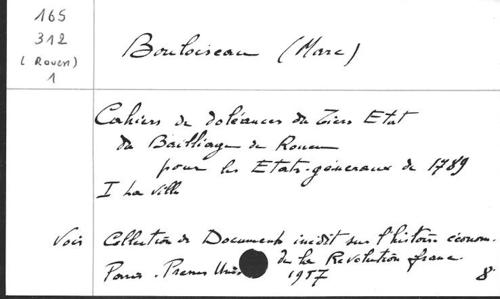 165
312
(Rouen)
1
Bouloiseau (Marc)
Cahiers de doléances du Tiers Etat
du Bailliage de Rouen
pour les Etats-généraux de 1789
I La ville
Voir Collection de Documents inédit sur l'histoire économ.
de la Révolution franc.
Paris. Presses Univ. 1957 8°